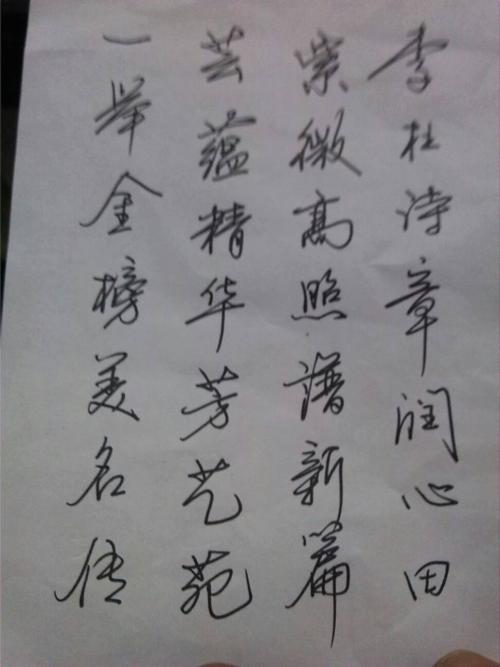 李杜诗章润心田
紫微高照谱新篇
芸蕴精华芳艺苑
一举金榜美名传